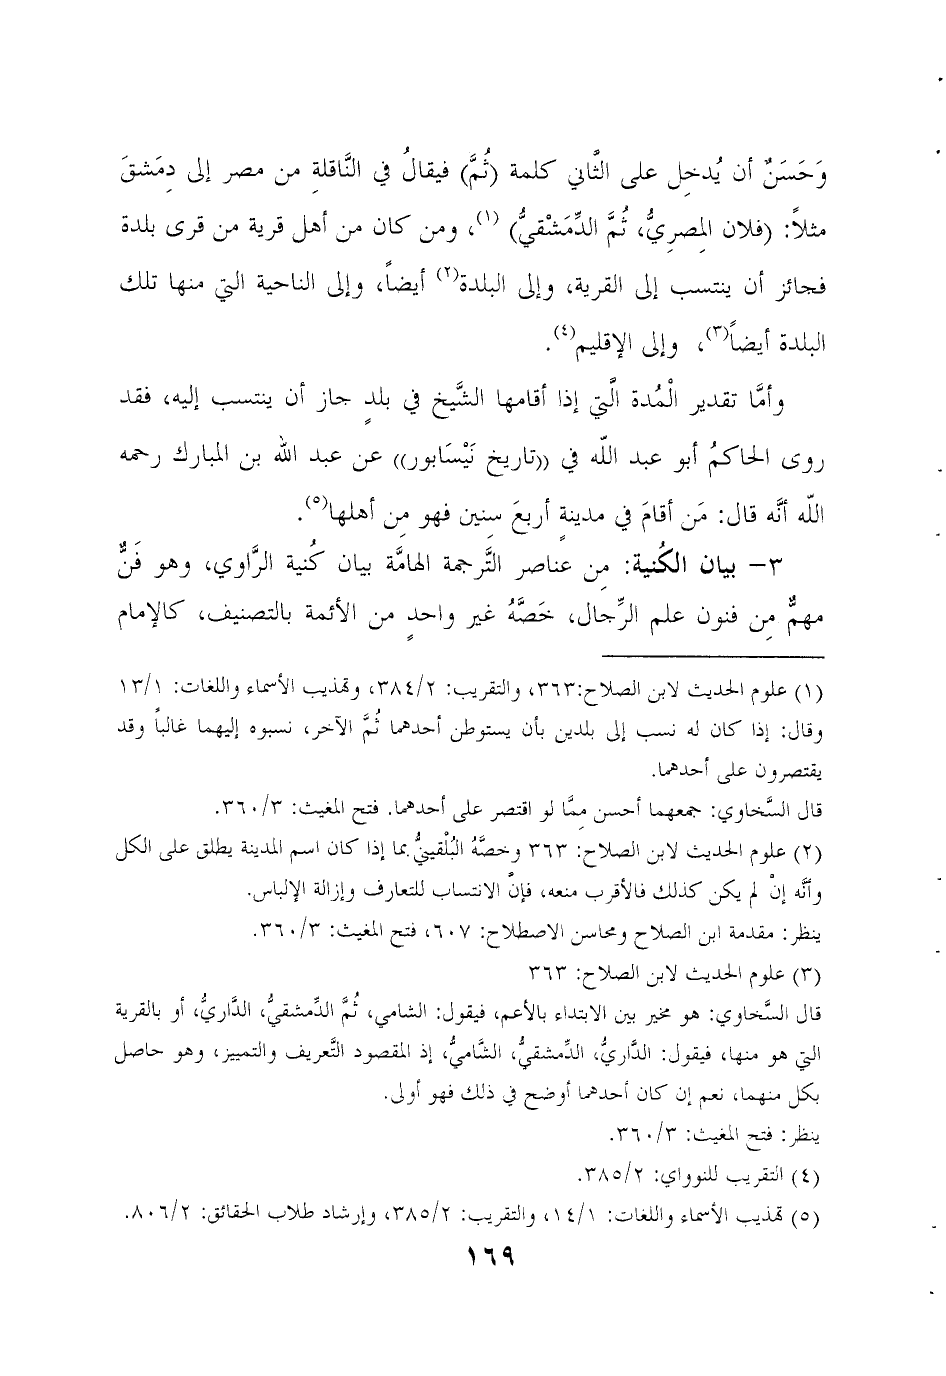 وَحَسَنٌ أن يُدخِل على الثَّاني كلمة (ثُمَّ) فيقالُ في النَّاقلةِ من مصر إلى دِمَشقَ
مثلاً: (فلان المِصرِيُّ، ثُمَّ الدِّمَشْقيُّ) (١)، ومن كان من أهل قرية من قرى بلدة
فجائز أن ينتسب إلى القرية، وإلى البلدة(٢) أيضاً، وإلى الناحية التي منها تلك
البلدة أيضاً(٣)، وإلى الإقليم(٤).
وأمَّا تقدير الْمُدة الَّتي إذا أقامها الشَّيخ في بلدٍ جاز أن ينتسب إليه، فقد
روى الحاكمُ أبو عبد اللّه في ((تاريخ نَيْسَابور)) عن عبد الله بن المبارك رحمه
اللّه أنَّه قال: مَن أقامَ في مدينةٍ أربعَ سِنين فهو مِن أهلها(٥).
٣- بيان الكُنية: مِن عناصر التَّرجمة الهامَّة بيان كُنية الرَّاوي، وهو فَنٌّ
مهمٌّ مِن فنون علم الرِّجال، خَصَّهُ غير واحدٍ من الأئمة بالتصنيف، كالإمام
(١) علوم الحديث لابن الصلاح:٣٦٣، والتقريب: ٣٨٤/٢، وتهذيب الأسماء واللغات: ١٣/١
وقال: إذا كان له نسب إلى بلدين بأن يستوطن أحدهما ثُمَّ الآخر، نسبوه إليهما غالباً وقد
يقتصرون على أحدهما.
قال السَّخاوي: جمعهما أحسن مِمَّا لو اقتصر على أحدهما. فتح المغيث: ٣٦٠/٣.
(٢) علوم الحديث لابن الصلاح: ٣٦٣ وخصَّهُ البُلْقينيُّ بما إذا كان اسم المدينة يطلق على الكل
وأنَّه إنْ لم يكن كذلك فالأقرب منعه، فإنَّ الانتساب للتعارف وإزالة الإلباس.
ينظر: مقدمة ابن الصلاح ومحاسن الاصطلاح: ٦٠٧، فتح المغيث: ٣٦٠/٣.
(٣) علوم الحديث لابن الصلاح: ٣٦٣
قال السَّخاوي: هو مخير بين الابتداء بالأعم، فيقول: الشامي، ثُمَّ الدِّمشقيُّ، الدَّاريُّ، أو بالقرية
التي هو منها، فيقول: الدَّاريُّ، الدِّمشقيُّ، الشَّاميُّ، إذ المقصود التَّعريف والتمييز، وهو حاصل
بكل منهما، نعم إن كان أحدهما أوضح في ذلك فهو أولى.
ينظر: فتح المغيث: ٣٦٠/٣.
(٤) التقريب للنوواي: ٣٨٥/٢.
(٥) تهذيب الأسماء واللغات: ١٤/١، والتقريب: ٣٨٥/٢، وإرشاد طلاب الحقائق: ٨٠٦/٢.
١٦٩